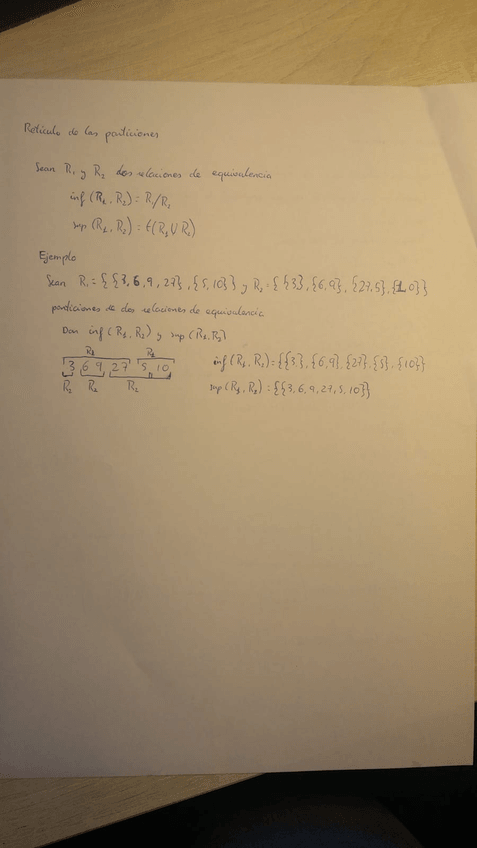 Retículo de las particiones
Sean R₁ y R₂ dos relaciones de equivalencia
inf (R₁, R₂) = R₁/R₂
sup (R₁, R₂) = t(R₁ ∪ R₂)
Ejemplo
Sean R₁ = {{3, 6, 9, 27}, {5, 10}} y R₂ = {{3}, {6, 9}, {27, 5}, {10}}
particiones de dos relaciones de equivalencia
Dar inf (R₁, R₂) y sup (R₁, R₂)
R₁ R₁
3 6 9 27 5 10 inf (R₁, R₂) = {{3}, {6, 9}, {27}, {5}, {10}}
R₂ R₂ R₂ sup (R₁, R₂) = {{3, 6, 9, 27, 5, 10}}